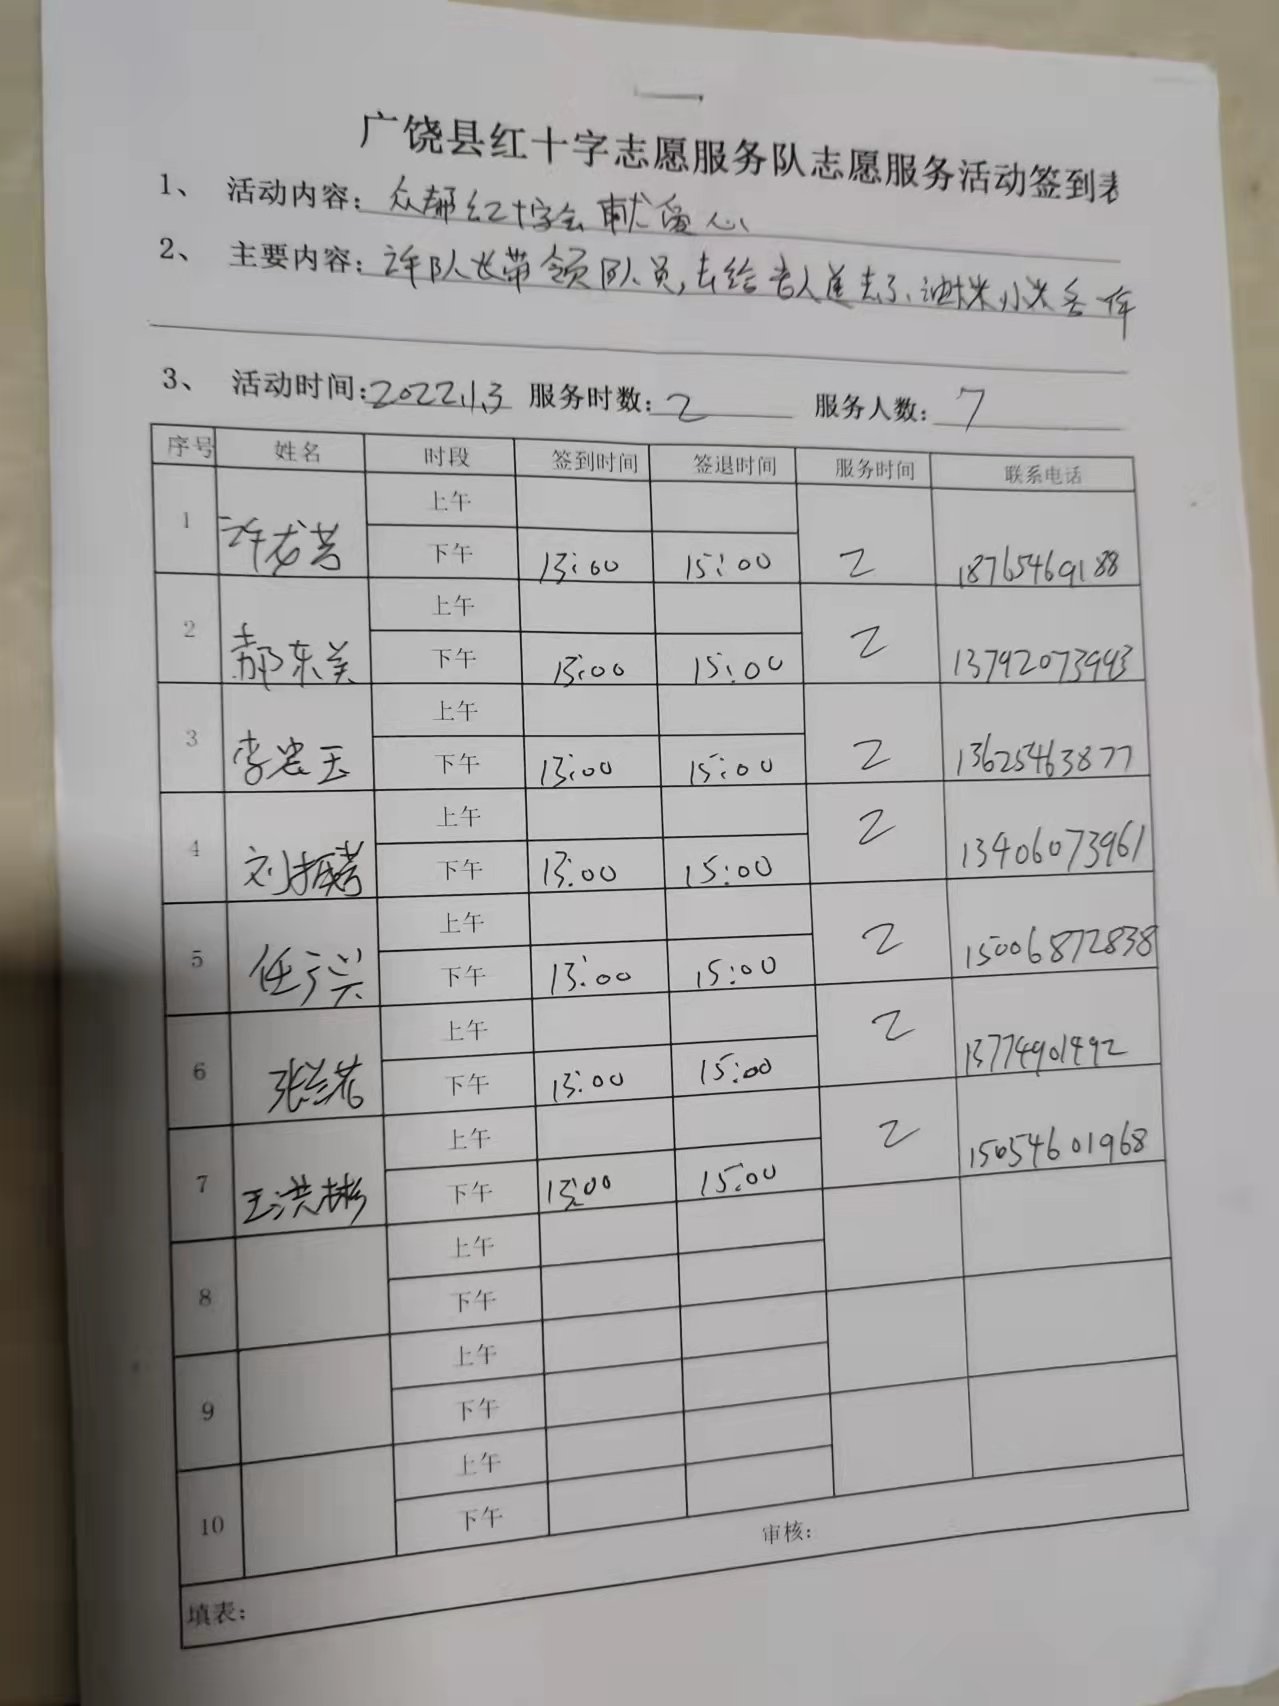 广饶县红十字志愿服务队志愿服务活动签到表
1、 活动内容：众帮红十字会献爱心
2、 主要内容：许队长带领队员,去给老人送去了、油米小米各一件
3、 活动时间：2022.1.3 服务时数：2 服务人数：7
序号 姓名 时段 签到时间 签退时间 服务时间 联系电话
上午
1 许龙芳 下午 13:00 15:00 2 18765469188
上午
2 郝东美 下午 13:00 15:00 2 13792073993
上午
3 李岩玉 下午 13:00 15:00 2 13625463877
上午
4 刘振 下午 13:00 15:00 2 13406073961
上午
5 任广兴 下午 13:00 15:00 2 15006872838
上午
6 张兰 下午 13:00 15:00 2 13774901492
上午
7 王洪彬 下午 13:00 15:00 2 15054601968
上午
8 下午
上午
9 下午
上午
10 下午
填表： 审核：